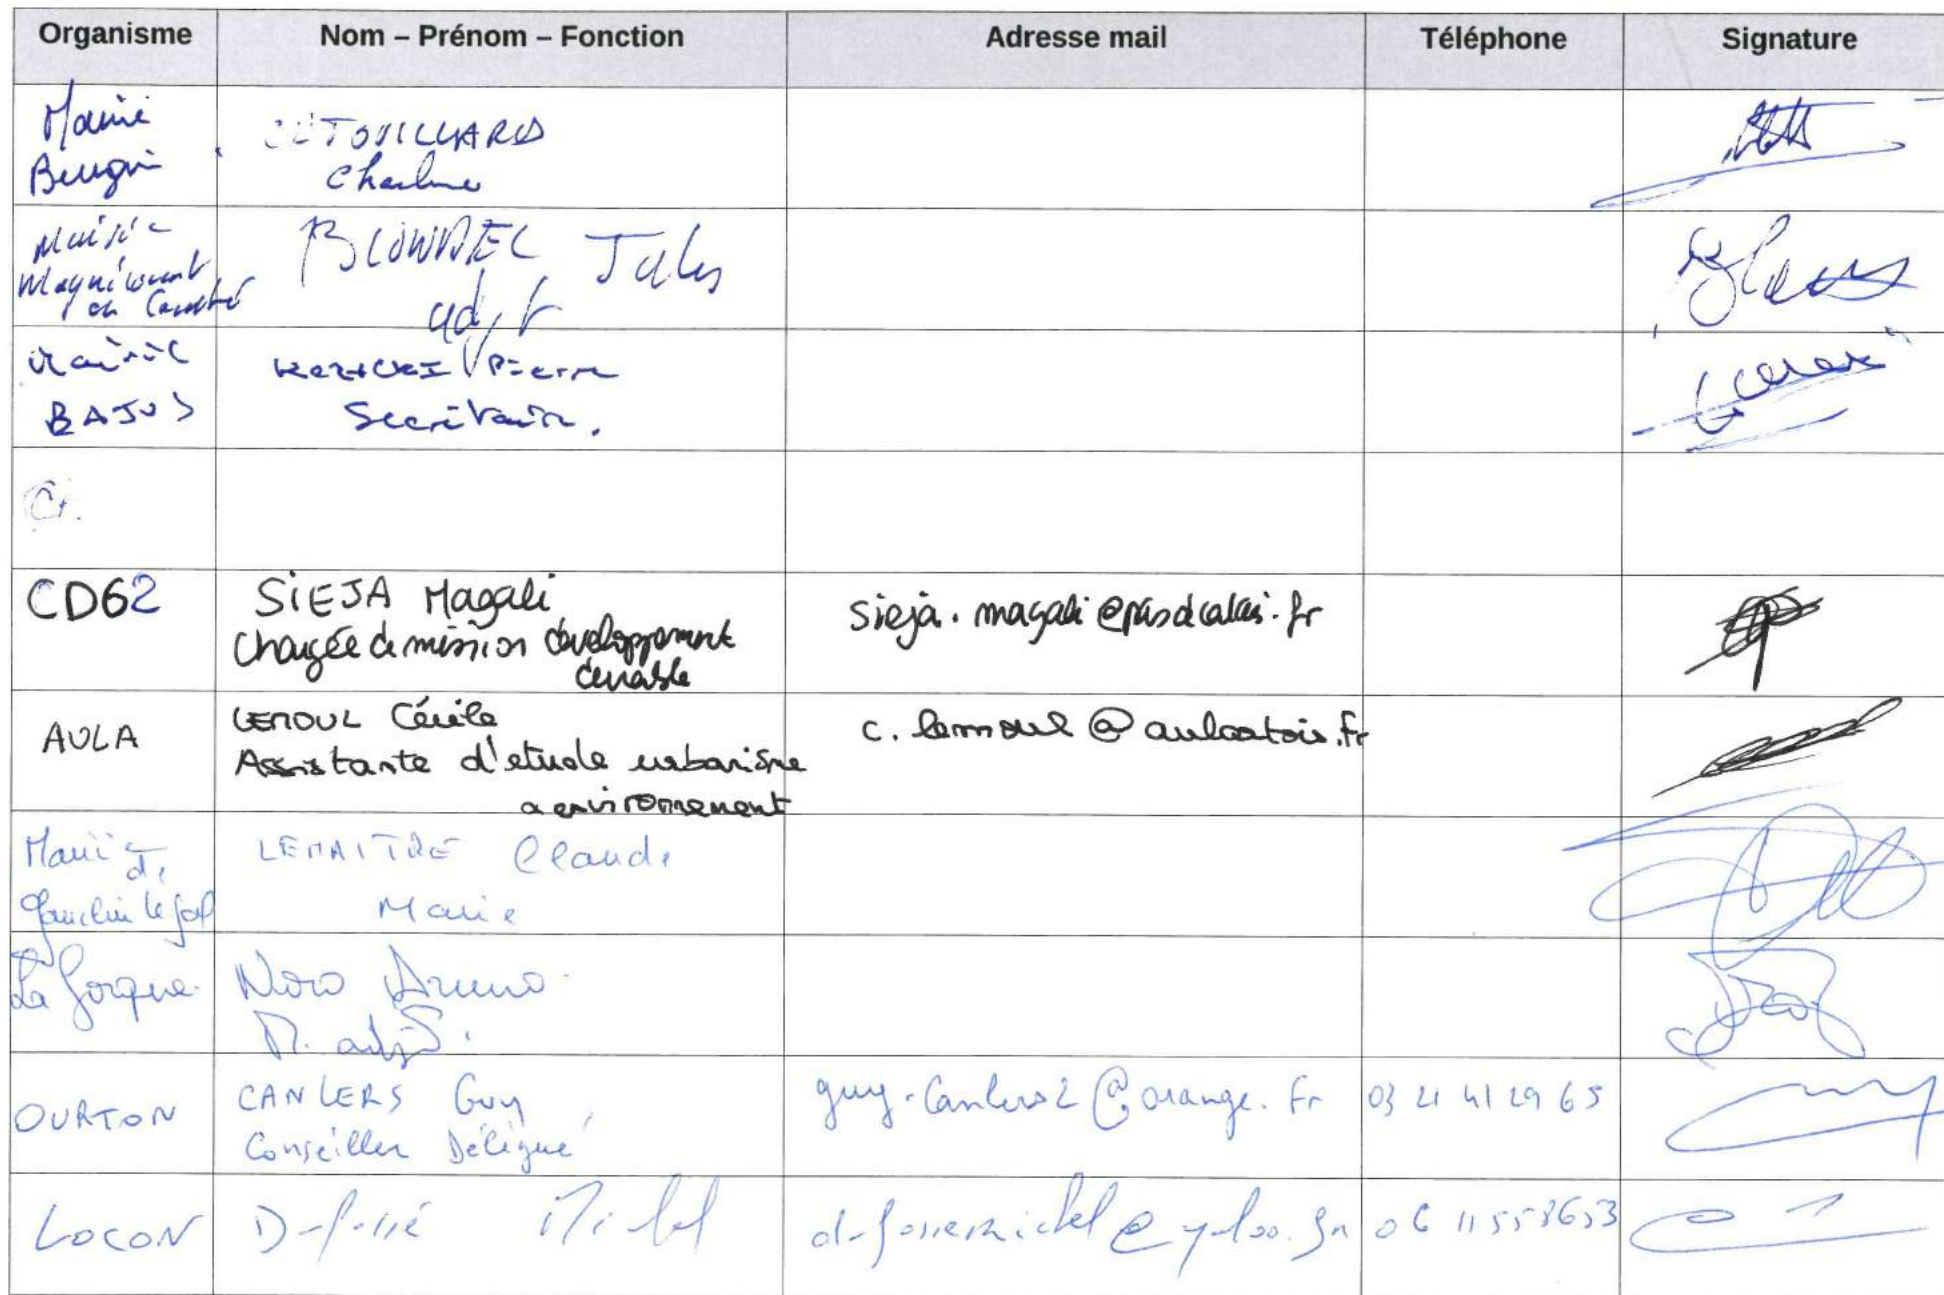 Organisme Nom – Prénom – Fonction Adresse mail Téléphone Signature
Mairie
Beugin
Charline
Mairie
Magnicourt
en Comté
BLONDEL Jules
adjt
Mairie
BAJUS
Pierre
Secrétaire.
CD62
SIEJA Magali
Chargée de mission développement
durable
sieja.magali@pasdecalais.fr
AULA
LEMOUL Cécile
Assistante d'etude urbanisme
environnement
c.lemoul@aulaartois.fr
Mairie
de
Gauchin le gal
LEMAITRE Claude
Marie
La Gorgue
Bruno
M. adjt.
OURTON
CANLERS Guy
Conseiller Délégué
guy-canlers2@orange.fr
03 21 41 29 65
LOCON
Defossé Michel
defossemichel@yahoo.fr
06 11553653